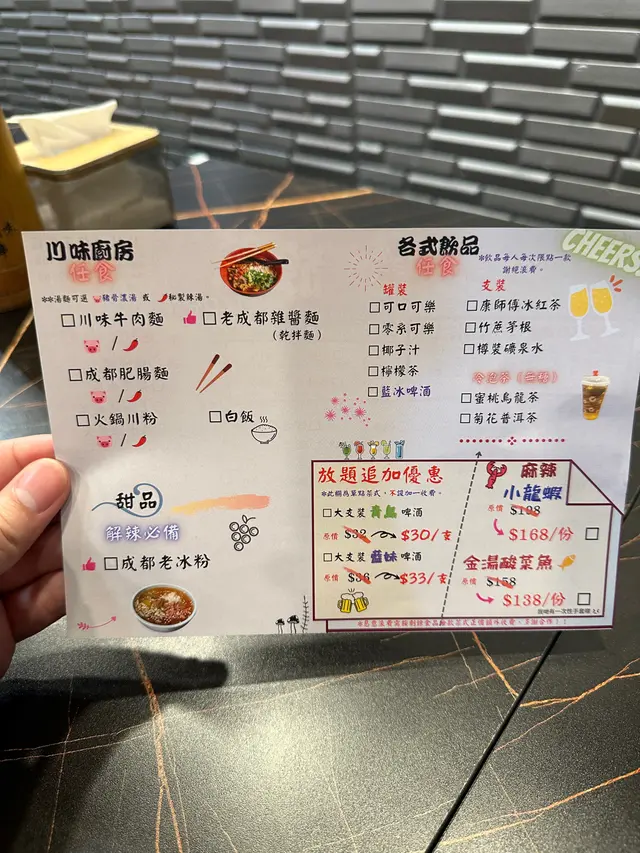 川味廚房
任食
**湯麵可選 豬骨濃湯 或 秘製辣湯。
川味牛肉麵
/
成都肥腸麵
/
火鍋川粉
/
老成都雜醬麵
(乾拌麵)
白飯
甜品
解辣必備
成都老冰粉
各式飲品
任食
*飲品每人每次限點一款
謝絕浪費。
CHEERS
罐裝
可口可樂
零系可樂
椰子汁
檸檬茶
藍冰啤酒
支裝
康師傅冰紅茶
竹蔗茅根
樽裝礦泉水
冷泡茶(無糖)
蜜桃烏龍茶
菊花普洱茶
放題追加優惠
*此欄為單點菜式,不設加一收費。
大支裝 青島 啤酒
原價 $32 $30/支
大支裝 藍妹 啤酒
原價 $36 $33/支
麻辣
小龍蝦
原價
$168/份
金湯酸菜魚
原價 $158
$138/份